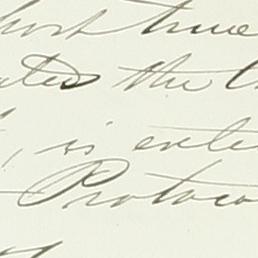 short time
ated the
, is ente
Protoco